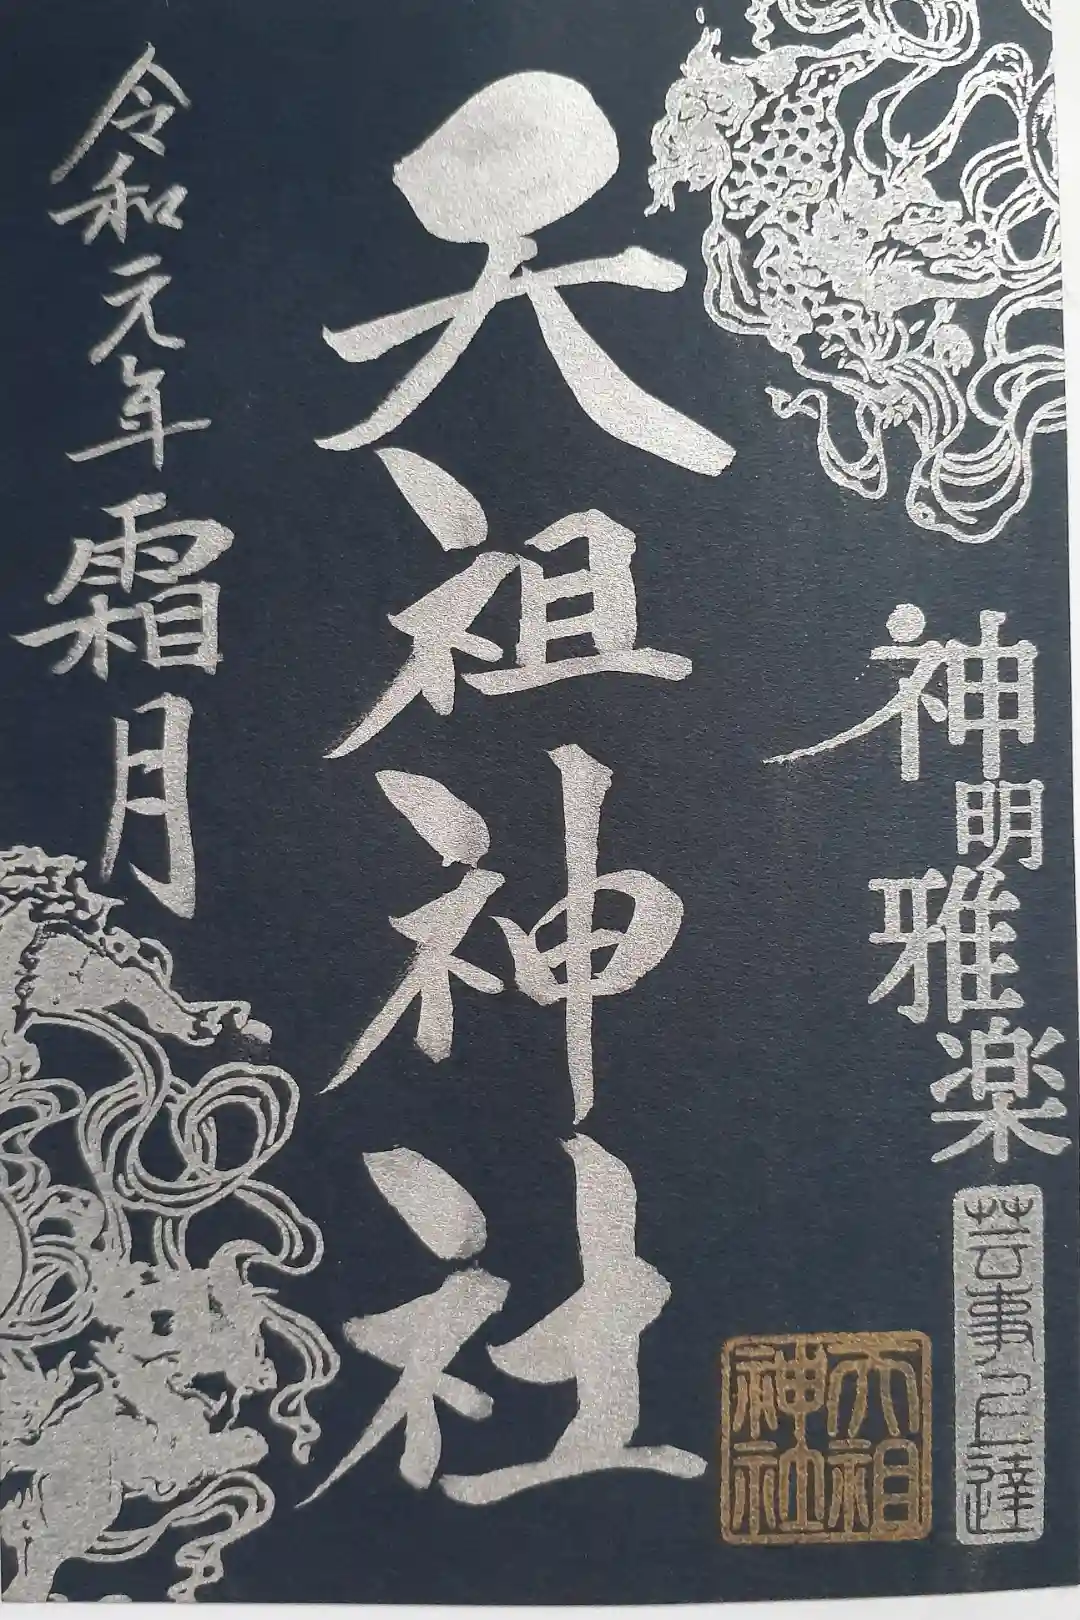 神明雅楽
芸事上達
天祖神社
天祖神社
令和元年霜月